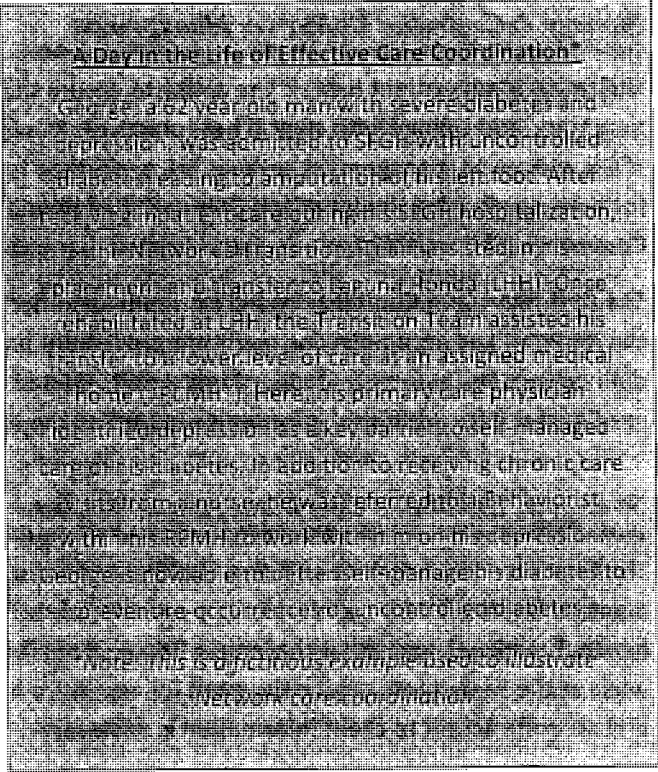 A Day in the Life of Effective Care Coordination*
George, a 62 year old man with severe diabetes and
depression, was admitted to SFGH with uncontrolled
diabetes leading to amputation of his left foot. After
inpatient care during SFGH hospitalization,
the Network's transition assisted in his
placement and transfer to Laguna Honda (LHH). Once
rehabilitated at LHH, the Transition Team assisted his
transfer to a lower level of care at an assigned medical
home. Here, his primary care physician
identified depression as a key barrier to self-managed
care of his diabetes. In addition to receiving chronic care
visits from a nurse, he was referred to a Behaviorist
within his PCMH to work with him on his depression.
George is now able to better self-manage his diabetes to
prevent re-occurrence of uncontrolled diabetes
*Note: This is a fictitious example used to illustrate
Network care coordination